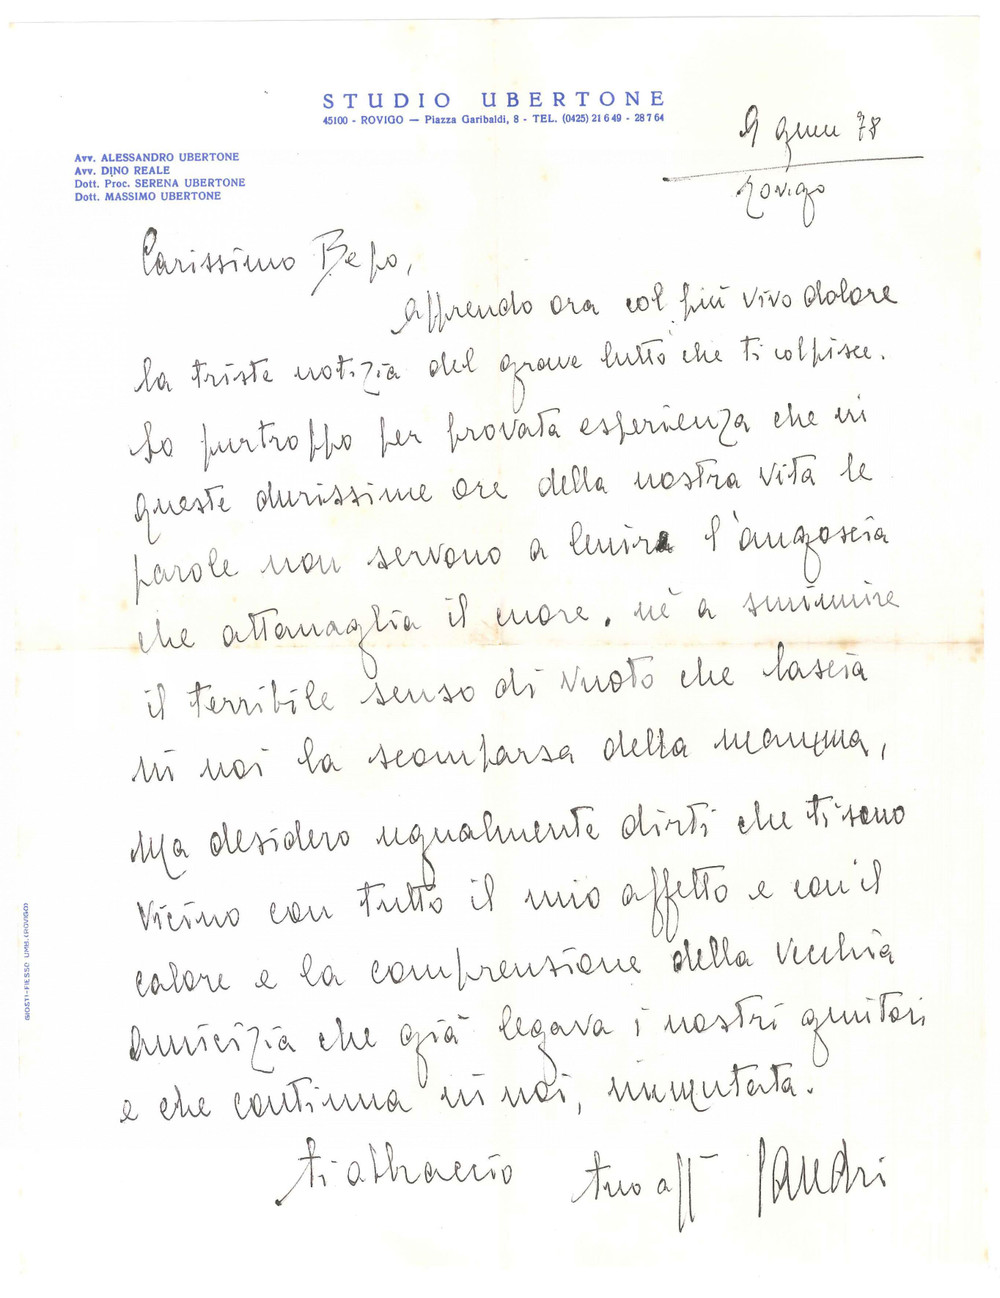 STUDIO UBERTONE
45100 - ROVIGO — Piazza Garibaldi, 8 - TEL. (0425) 21649 - 28764
Avv. ALESSANDRO UBERTONE
Avv. DINO REALE
Dott. Proc. SERENA UBERTONE
Dott. MASSIMO UBERTONE
9 genn 78
Rovigo
Carissimo Bepo,
apprendo ora col più vivo dolore
la triste notizia del grave lutto che ti colpisce.
So purtroppo per provata esperienza che in
queste durissime ore della nostra vita le
parole non servono a lenire l'angoscia
che attanaglia il cuore, nè a sminuire
il terribile senso di vuoto che lascia
in noi la scomparsa della mamma,
Ma desidero ugualmente dirti che ti sono
vicino con tutto il mio affetto e con il
calore e la comprensione della vecchia
amicizia che già legava i nostri genitori
e che continua in noi, immutata.
ti abbraccio
tuo aff Sandri
GIOSTI-FIESSO UMB. (ROVIGO)